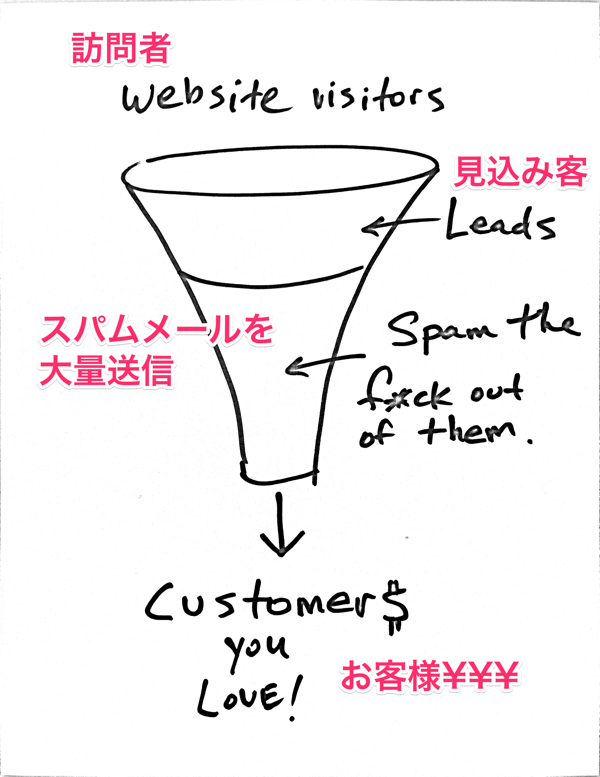 訪問者
website visitors
見込み客
Leads
スパムメールを
大量送信
Spam the
f*ck out
of them.
Customer$
you
LOVE!
お客様¥¥¥